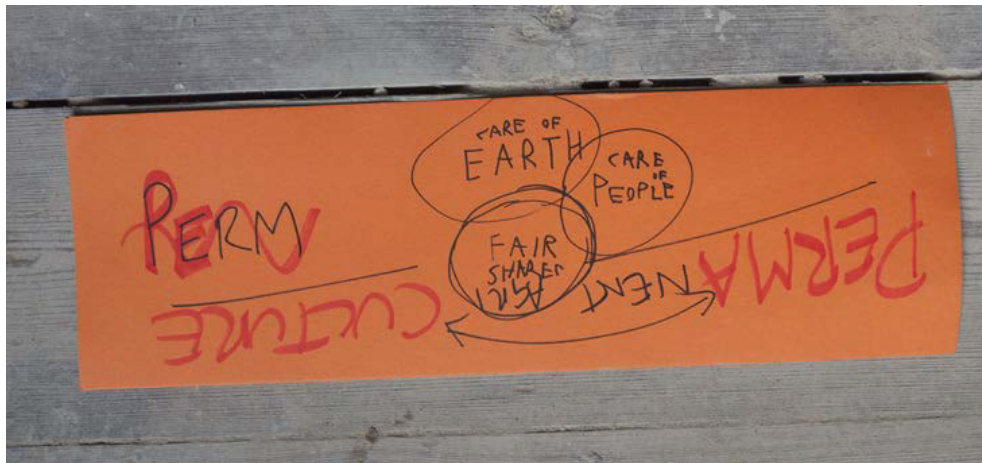 PERM
CARE OF
EARTH
CARE
OF
PEOPLE
FAIR
SHARES
PERMANENT
AGRI
CULTURE